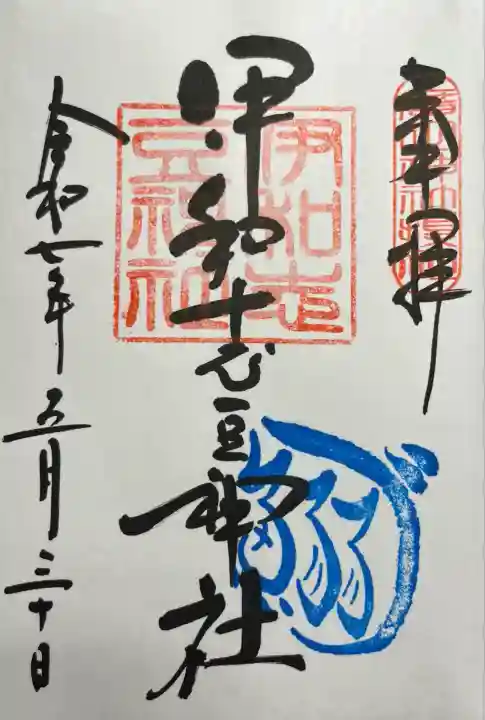 奉拝
伊和志豆神社
伊和志
豆神社
鰯
づ
令和七年五月三十日